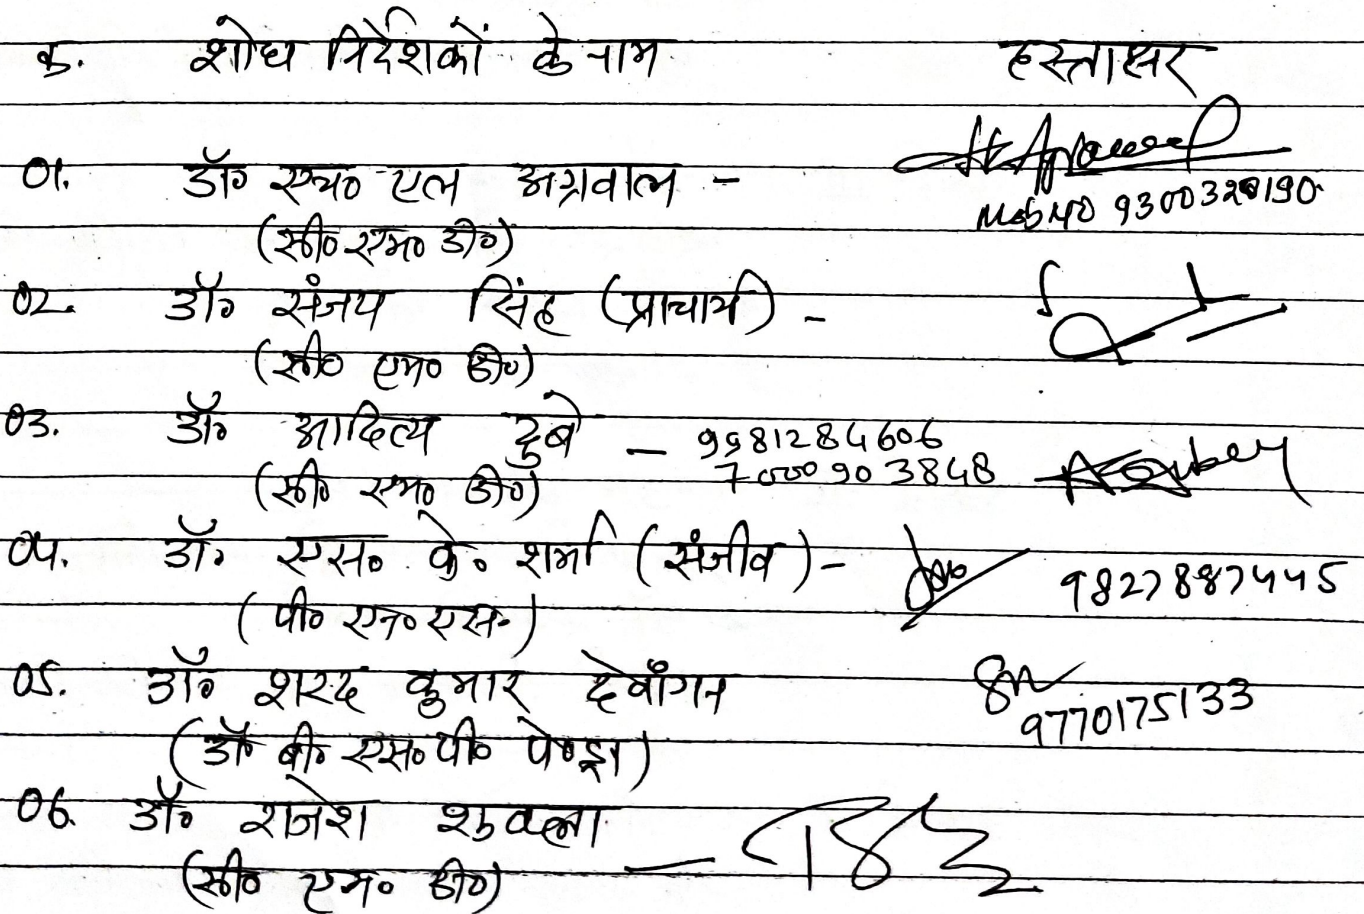 क्र. शोध निर्देशकों के नाम हस्ताक्षर
01. डॉ० एच० एल अग्रवाल -
Mob No 9300320190
(सी० एम० डी०)
02. डॉ० संजय सिंह (प्राचार्य) -
(सी० एम० डी०)
03. डॉ० आदित्य दुबे - 9981284606
7000903848
(सी० एम० डी०)
04. डॉ. एस. के. शर्मा (संजीव) - 9827887445
(पी० एन० एस.)
05. डॉ० शरद कुमार देवांगन
9770175133
(डॉ बी० एस० पी० पेण्ड्रा)
06. डॉ० राजेश शुक्ला
(सी० एम० डी०)